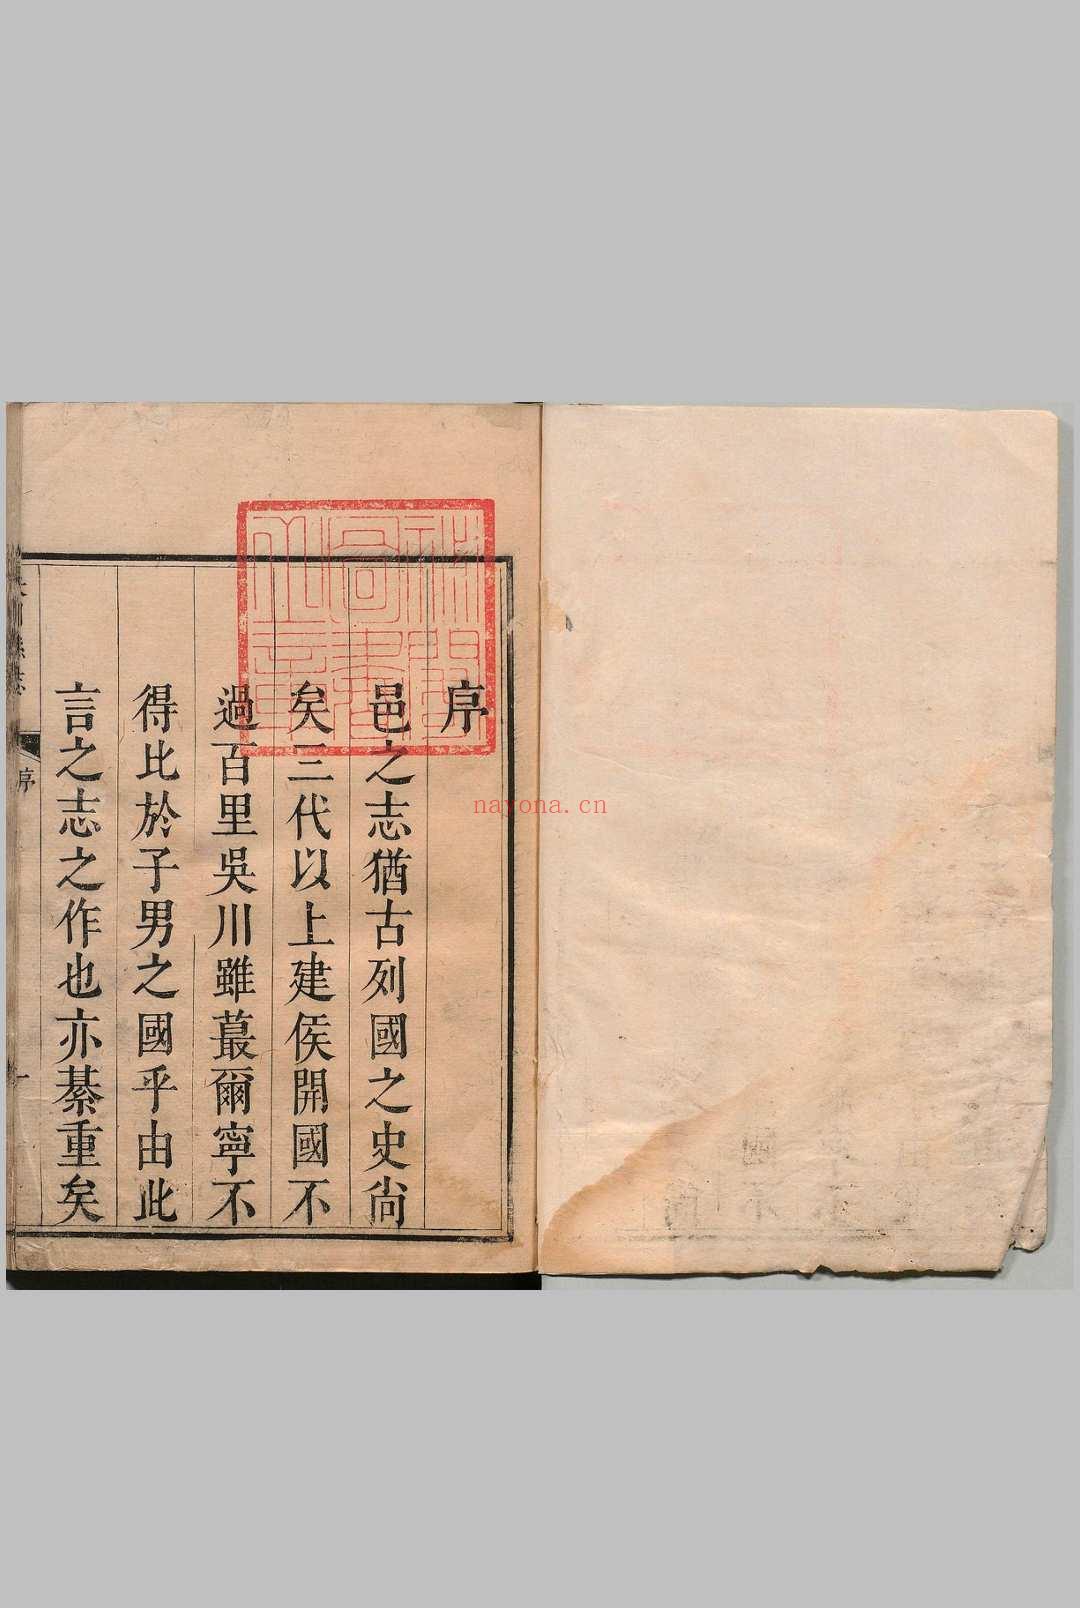 序
邑之志猶古列國之史尚
矣三代以上建侯開國不
過百里吳川雖蕞爾寧不
得比於子男之國乎由此
言之志之作也亦綦重矣
序
一
秘閣
圖書
之章
nayona.cn